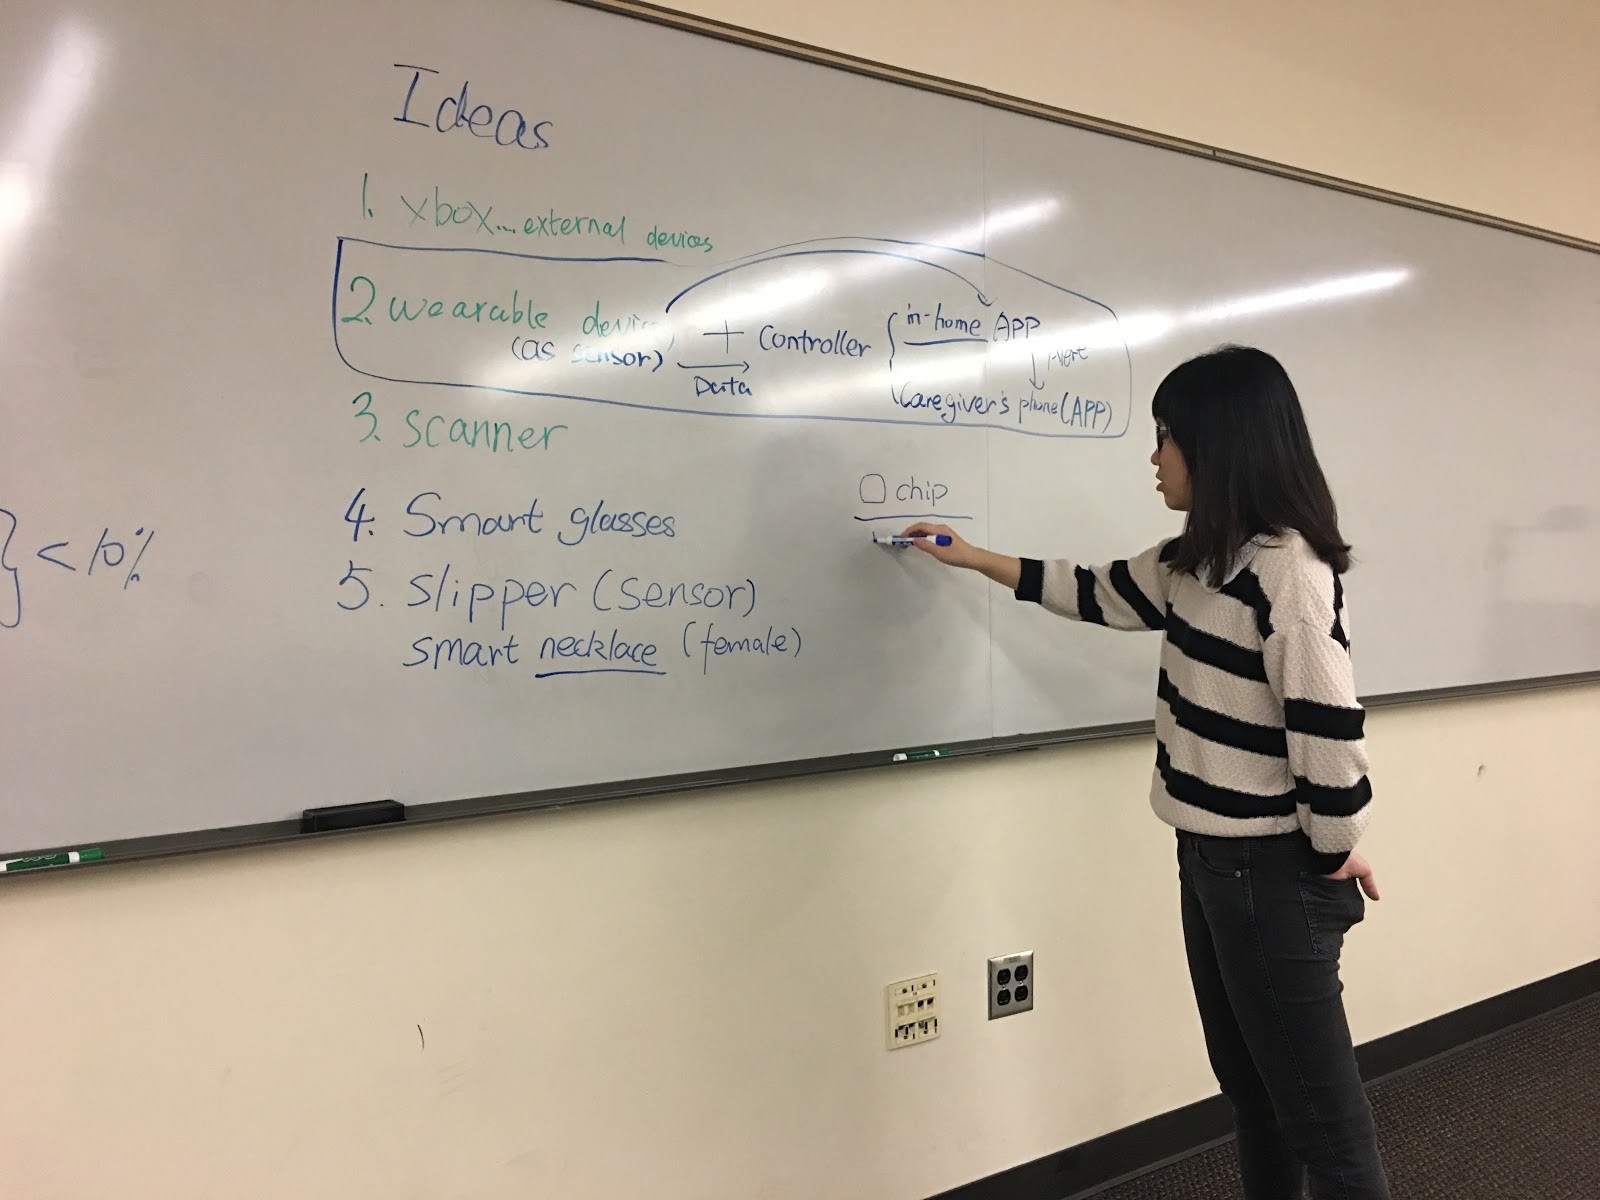 Ideas
1. xbox... external devices
2. wearable
(as sensor)
+
Data
Controller
{ in-home APP
Alert
Caregiver's phone (APP)
3. scanner
chip
4. Smart glasses
5. slipper (sensor)
smart necklace (female)
} < 10%